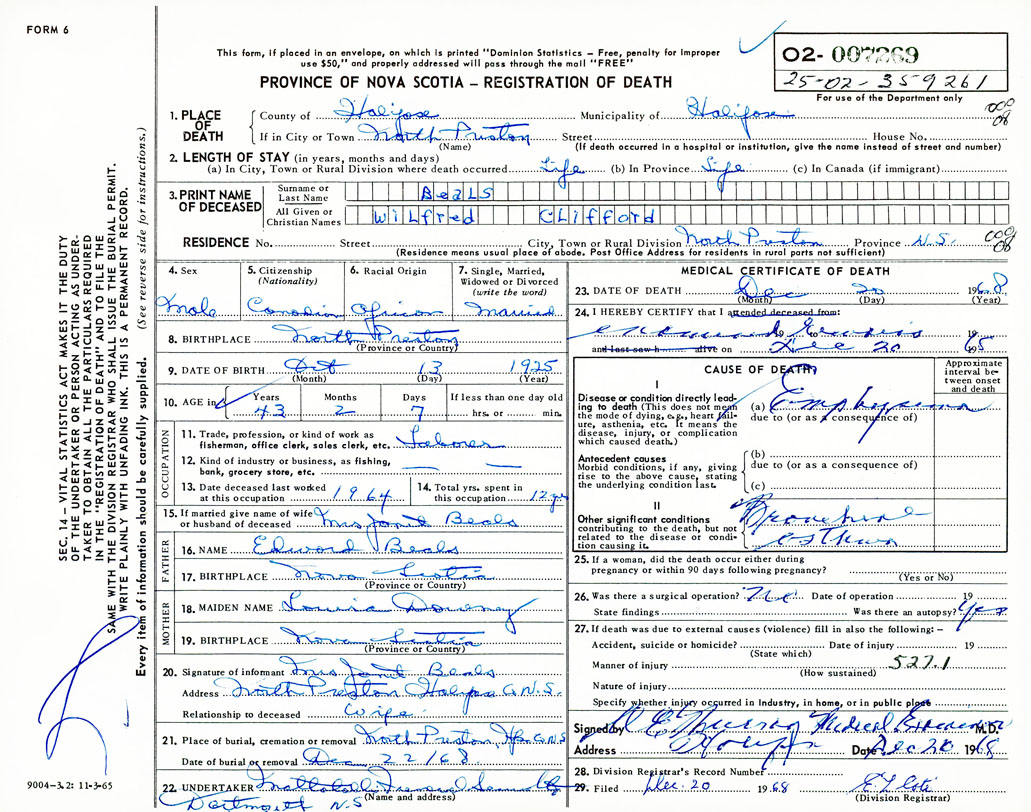 FORM 6
This form, if placed in an envelope, on which is printed "Dominion Statistics – Free, penalty for improper
use $50," and properly addressed will pass through the mail "FREE"
PROVINCE OF NOVA SCOTIA – REGISTRATION OF DEATH
02- 007269
25-02-359261
For use of the Department only
1. PLACE OF DEATH
County of Halifax Municipality of Halifax
If in City or Town North Preston Street House No.
(Name) (If death occurred in a hospital or institution, give the name instead of street and number)
2. LENGTH OF STAY (in years, months and days)
(a) In City, Town or Rural Division where death occurred Life (b) In Province Life (c) In Canada (if immigrant)
3. PRINT NAME OF DECEASED
Surname or Last Name BeaLS
All Given or Christian Names WiLfred CLifford
RESIDENCE No. Street City, Town or Rural Division North Preston Province N.S.
(Residence means usual place of abode. Post Office Address for residents in rural parts not sufficient)
4. Sex
Male
5. Citizenship
(Nationality)
Canadian
6. Racial Origin
African
7. Single, Married,
Widowed or Divorced
(write the word)
Married
8. BIRTHPLACE North Preston
(Province or Country)
9. DATE OF BIRTH Oct 13 1925
(Month) (Day) (Year)
10. AGE in
Years Months Days If less than one day old
43 2 7 hrs. or min.
OCCUPATION
11. Trade, profession, or kind of work as
fisherman, office clerk, sales clerk, etc. Labores
12. Kind of industry or business, as fishing,
bank, grocery store, etc.
13. Date deceased last worked
at this occupation 1964
14. Total yrs. spent in
this occupation 12 yrs
15. If married give name of wife
or husband of deceased Mrs Janit Beals
FATHER
16. NAME Edward Beals
17. BIRTHPLACE Nova Scotia
(Province or Country)
MOTHER
18. MAIDEN NAME Louisa Downey
19. BIRTHPLACE Nova Scotia
(Province or Country)
20. Signature of informant Mrs Janit Beals
Address North Preston Halifax Co. N.S.
Relationship to deceased Wife
21. Place of burial, cremation or removal North Preston, Hfx Co N.S
Date of burial or removal Dec 22/68
22. UNDERTAKER
(Name and address)
Dartmouth N.S
MEDICAL CERTIFICATE OF DEATH
23. DATE OF DEATH Dec 20 1968
(Month) (Day) (Year)
24. I HEREBY CERTIFY that I attended deceased from:
19
and last saw h alive on Dec 20 19
CAUSE OF DEATH
Approximate
interval be-
tween onset
and death
I
Disease or condition directly lead-
ing to death (This does not mean
the mode of dying, e.g., heart fail-
ure, asthenia, etc. It means the
disease, injury, or complication
which caused death.)
(a) Emphysema
due to (or as a consequence of)
Antecedent causes
Morbid conditions, if any, giving
rise to the above cause, stating
the underlying condition last.
(b)
due to (or as a consequence of)
(c)
II
Other significant conditions
contributing to the death, but not
related to the disease or condi-
tion causing it.
Bronchial
asthma
25. If a woman, did the death occur either during
pregnancy or within 90 days following pregnancy?
(Yes or No)
26. Was there a surgical operation? No Date of operation 19
State findings Was there an autopsy? Yes
27. If death was due to external causes (violence) fill in also the following: –
Accident, suicide or homicide? Date of injury 19
(State which)
Manner of injury 527.1
(How sustained)
Nature of injury
Specify whether injury occurred in Industry, in home, or in public place
Signed by Medical Examiner M.D.
Address Date Dec 20 1968
28. Division Registrar's Record Number
29. Filed Dec. 20 1968
(Division Registrar)
SEC. 14 – VITAL STATISTICS ACT MAKES IT THE DUTY
OF THE UNDERTAKER OR PERSON ACTING AS UNDER-
TAKER TO OBTAIN ALL THE PARTICULARS REQUIRED
IN THE "REGISTRATION OF DEATH" AND TO FILE THE
SAME WITH THE DIVISION REGISTRAR WHO SHALL ISSUE THE BURIAL PERMIT.
WRITE PLAINLY WITH UNFADING INK. THIS IS A PERMANENT RECORD.
Every item of information should be carefully supplied. (See reverse side for instructions.)
9004-3.2: 11-3-65